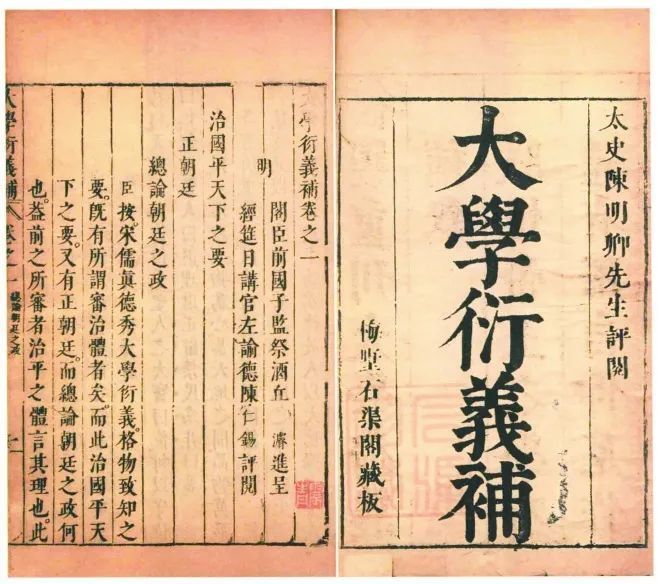 太史陳明卿先生評閱
大學衍義補
梅墅石渠閣藏板
大學衍義補卷之一
明
閣臣前國子監祭酒丘 濬進呈
經筵日講官左諭德陳仁錫評閱
治國平天下之要
正朝廷
總論朝廷之政
臣按宋儒眞德秀大學衍義格物致知之
要。旣有所謂審治體者矣。而此治國平天
下之要。又有正朝廷。而總論朝廷之政何
也。葢前之所審者治平之體言其理也。此
大學衍義補 卷之一 總論朝廷之政 一